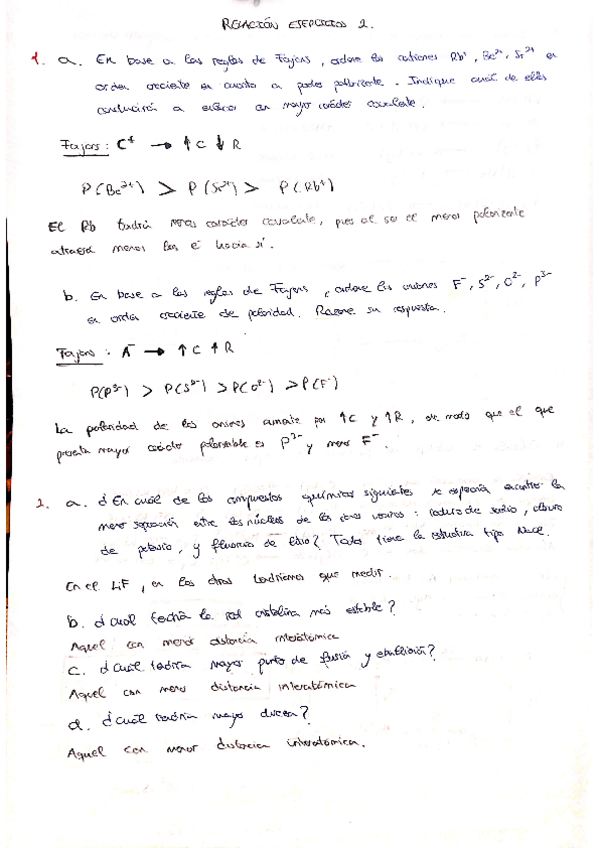 RELACIÓN EJERCICIOS 2.
1. a. En base a las reglas de Fajans, ordene los cationes Rb⁺, Be²⁺, Sr²⁺ en
orden creciente en cuanto a poder polarizante. Indique cuál de ellos
conducirá a enlaces con mayor carácter covalente.
Fajans: C⁺ → ↑C ↓R
P(Be²⁺) > P(Sr²⁺) > P(Rb⁺)
El Rb tendrá menos carácter covalente, pues al ser el menos polarizante
atraerá menos los e⁻ hacia sí.
b. En base a las reglas de Fajans, ordene los aniones F⁻, S²⁻, O²⁻, P³⁻
en orden creciente de polaridad. Razone su respuesta.
Fajans: A⁻ → ↑C ↑R
P(P³⁻) > P(S²⁻) > P(O²⁻) > P(F⁻)
La polaridad de los aniones aumenta por ↑C y ↑R, de modo que el que
presenta mayor carácter polarizable es P³⁻ y menor F⁻.
2. a. ¿En cuál de los compuestos químicos siguientes se esperaría encontrar la
menor separación entre los núcleos de los iones vecinos: ioduro de sodio, cloruro
de potasio, y fluoruro de litio? Todos tiene la estructura tipo NaCl.
En el LiF, en los otros tendríamos que medir.
b. ¿Cuál tendría la red cristalina más estable?
Aquel con menor distancia interatómica
c. ¿Cuál tendría mayor punto de fusión y ebullición?
Aquel con menor distancia interatómica
d. ¿Cuál tendría mayor dureza?
Aquel con menor distancia interatómica.